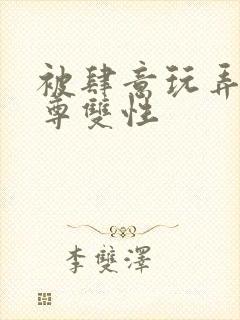 被肆意玩弄
尊雙性
李雙澤